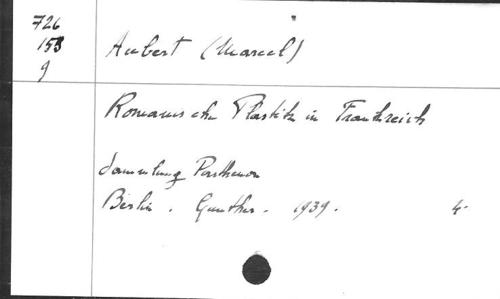 726
153
g
Aubert (Marcel)
Romanische Plastik in Frankreich
Sammlung Parthenon
Berlin. Gunther. 1939. 4°